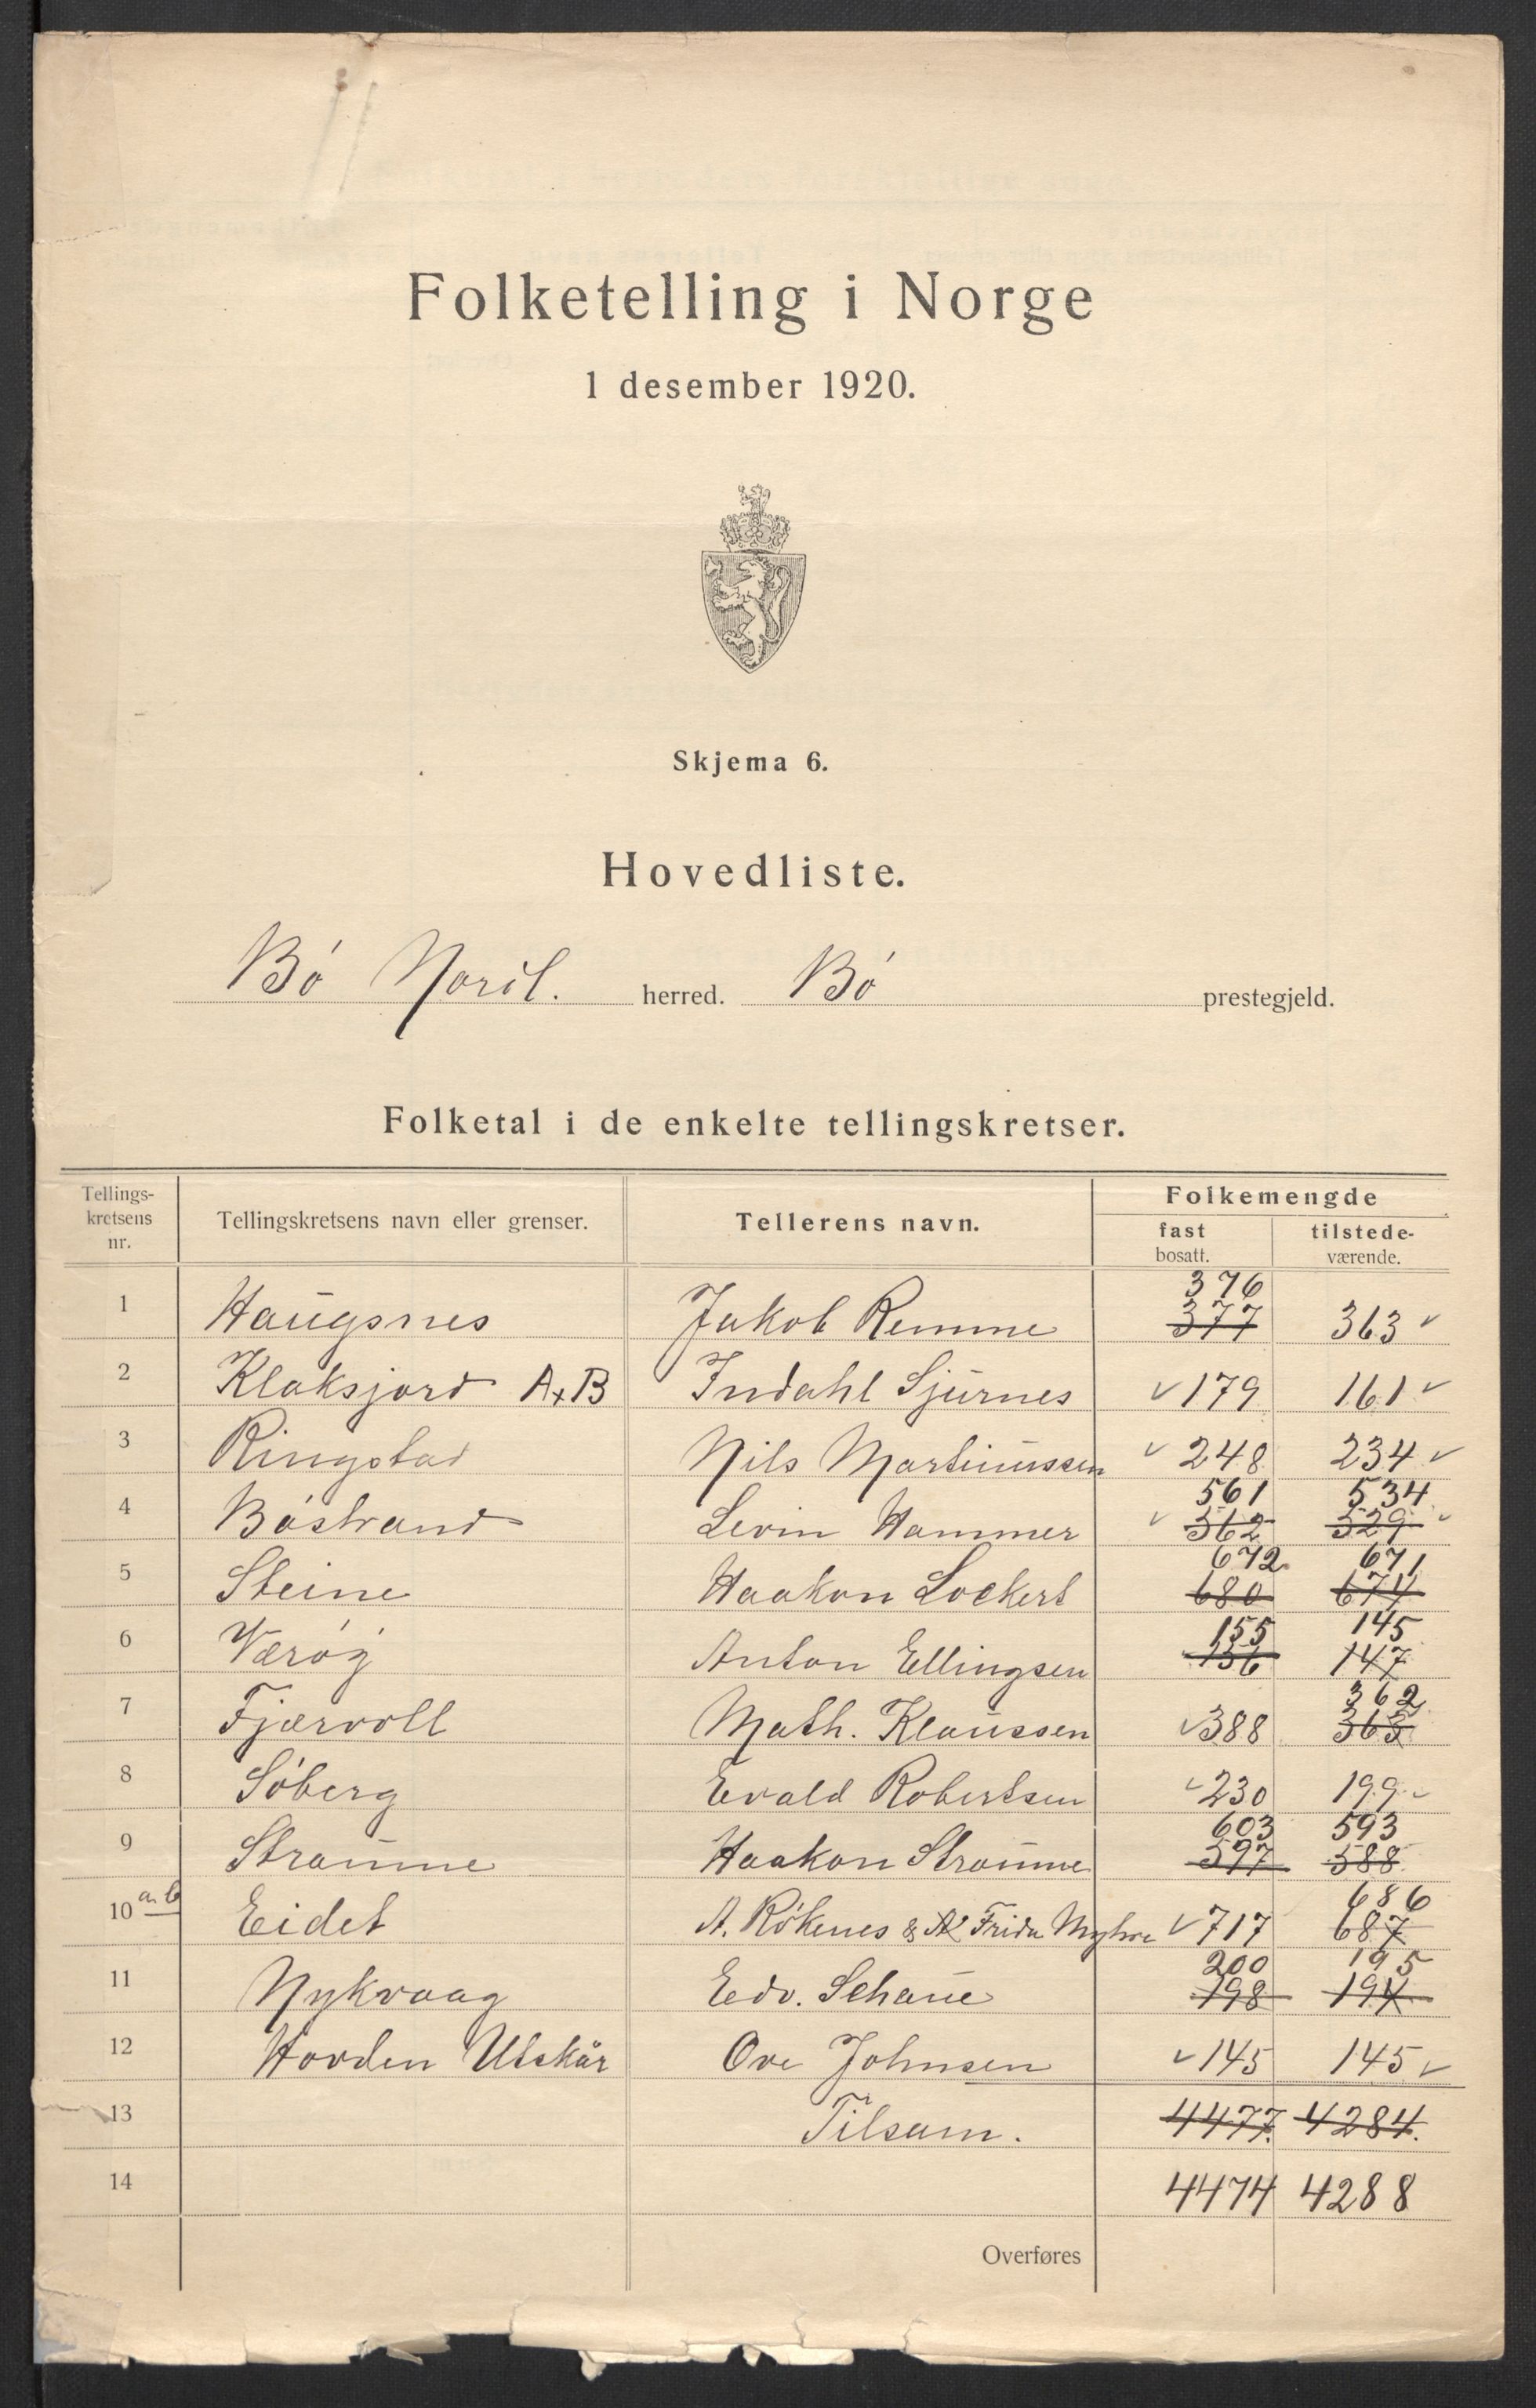 Folketelling i Norge
1 desember 1920.
Skjema 6.
Hovedliste.
Bó Nordl. herred. Bó prestegjeld.
Folketal i de enkelte tellingskretser.
Tellings-kretsens nr. Tellingskretsens navn eller grenser. Tellerens navn. Folkemengde
fast bosatt. tilstede-værende.
376
1 Haugsnes Jakob Remme 377 363 ✓
2 Klaksjord A+B Indahl Sjurnes ✓ 179 161 ✓
3 Ringstad Nils Martinussen ✓ 248 234 ✓
561 534
4 Bóstrand Levin Hammer ✓ 562 529 ✓
672 671
5 Steine Haakon Lockert 680 674
155 145
6 Værøy Anton Ellingsen 156 147
362
7 Fjærvoll Math. Klaussen ✓ 388 363
8 Sóberg Evald Robertsen ✓ 230 199 ✓
603 593
9 Straumne Haakon Straumne 597 588
686
10 a.b Eidet A. Rókenes & Frida Myhre ✓ 717 687
200 195
11 Nykvaag Edv. Schaue 198 194
12 Hovden Utskår Ove Johnsen ✓ 145 145 ✓
13 Tilsam. 4477. 4284.
14 4474 4288
Overføres